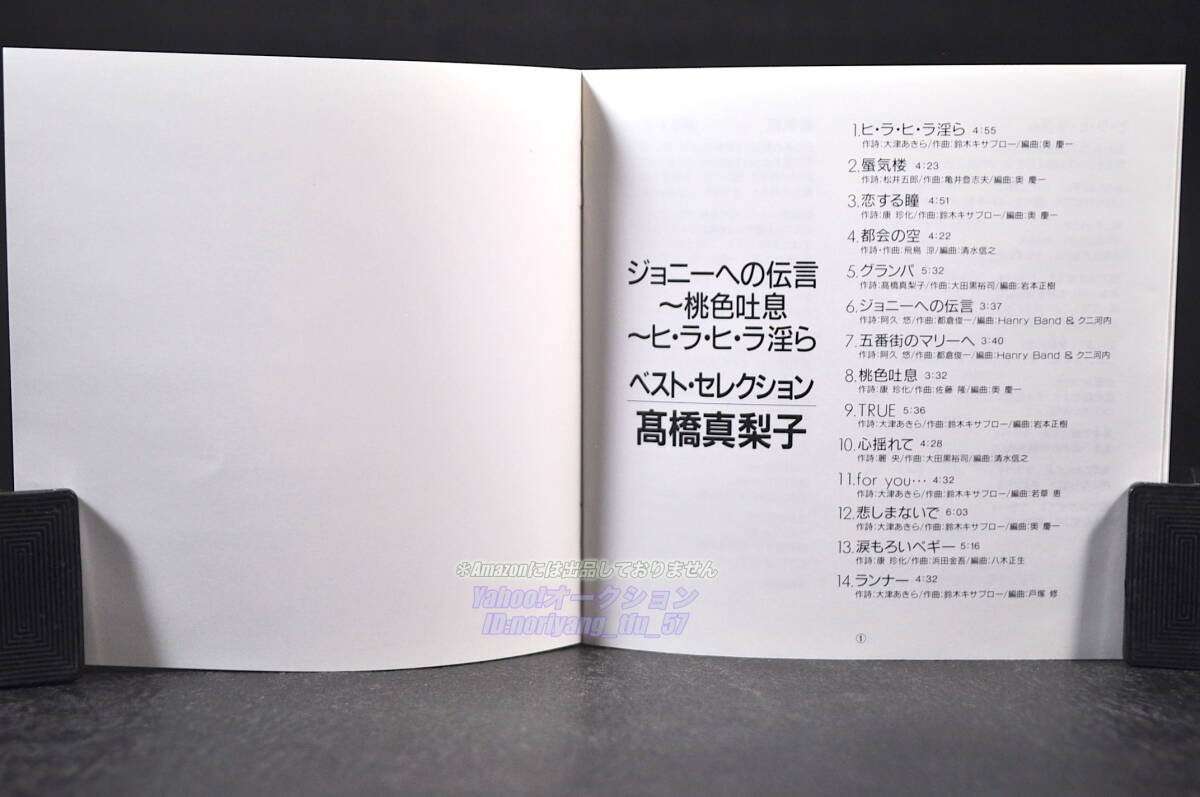 ジョニーへの伝言
～桃色吐息
～ヒ・ラ・ヒ・ラ淫ら
ベスト・セレクション
髙橋真梨子
1.ヒ・ラ・ヒ・ラ淫ら 4:55
作詩:大津あきら/作曲:鈴木キサブロー/編曲:奥 慶一
2.蜃気楼 4:23
作詩:松井五郎/作曲:亀井登志夫/編曲:奥 慶一
3.恋する瞳 4:51
作詩:康 珍化/作曲:鈴木キサブロー/編曲:奥 慶一
4.都会の空 4:22
作詩・作曲:飛鳥 涼/編曲:清水信之
5.グランパ 5:32
作詩:髙橋真梨子/作曲:大田黒裕司/編曲:岩本正樹
6.ジョニーへの伝言 3:37
作詩:阿久 悠/作曲:都倉俊一/編曲:Hanry Band & クニ河内
7.五番街のマリーへ 3:40
作詩:阿久 悠/作曲:都倉俊一/編曲:Hanry Band & クニ河内
8.桃色吐息 3:32
作詩:康 珍化/作曲:佐藤 隆/編曲:奥 慶一
9.TRUE 5:36
作詩:大津あきら/作曲:鈴木キサブロー/編曲:岩本正樹
10.心揺れて 4:28
作詩:麗 央/作曲:大田黒裕司/編曲:清水信之
11.for you… 4:32
作詩:大津あきら/作曲:鈴木キサブロー/編曲:若草 恵
12.悲しまないで 6:03
作詩:大津あきら/作曲:鈴木キサブロー/編曲:奥 慶一
13.涙もろいペギー 5:16
作詩:康 珍化/作曲:浜田金吾/編曲:八木正生
14.ランナー 4:32
作詩:大津あきら/作曲:鈴木キサブロー/編曲:戸塚 修
①
※Amazonには出品しておりません
Yahoo!オークション
ID:noriyang_tfu_57